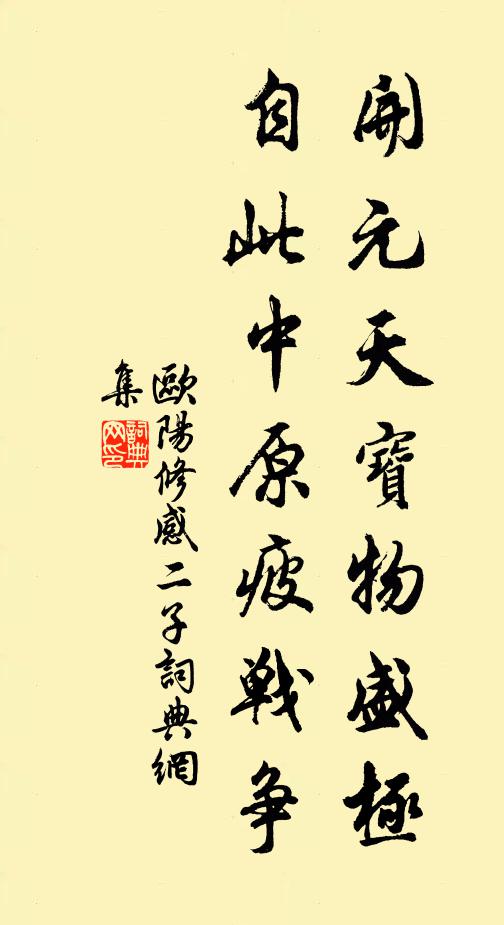 開元天寶物盛極
自此中原疲戰爭
歐陽修感二子詞典網
集
詞典
网印